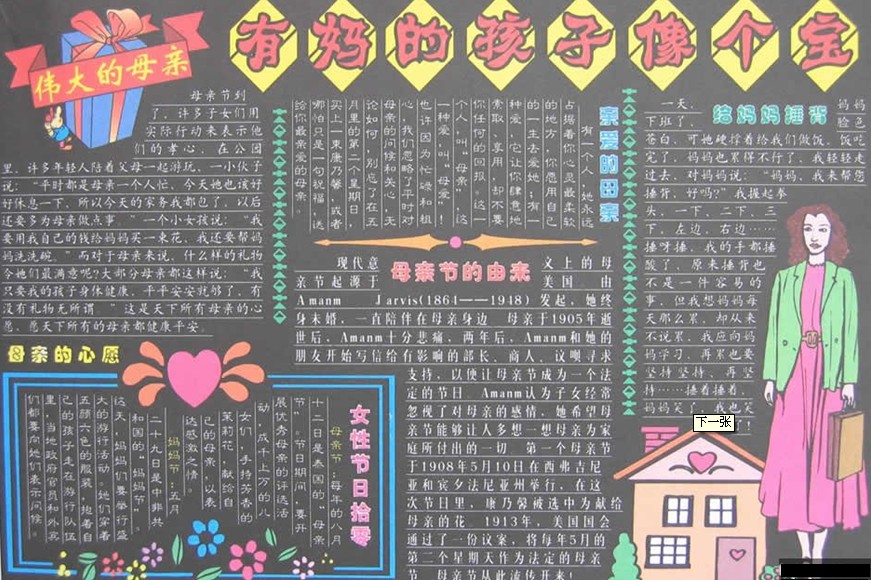 有妈的孩子像个宝
伟大的母亲
母亲节到
了，许多子女们用
实际行动来表示他
们的孝心，在公园
里，许多年轻人陪着父母一起游玩，一小伙子
说：“平时都是母亲一个人忙，今天她也该好
好休息一下，所以今天的家务我都包了，以后
还要多为母亲做点事。”一个小女孩说：“我
要用我自己的钱给妈妈买一束花，我还要帮妈
妈洗洗碗。”而对于母亲来说，什么样的礼物
令她们最满意呢?大部分母亲都这样说：“我
只要我的孩子身体健康，平平安安就够了，有
没有礼物无所谓。”这是天下所有母亲的心
愿，愿天下所有的母亲都健康平安。
母亲的心愿
亲爱的母亲
有一个人，她永远
占据着你心灵最柔软
的地方，你愿用自己
的一生去爱她；有一
种爱，它让你肆意地
索取、享用，却不要
你任何的回报。这一
个人，叫“母亲”，这
一种爱，叫“母爱”！
也许因为忙碌和粗
心，我们忽略了平时对
母亲的问候和关心，无
论如何，别忘了在五
月里的第二个星期日，
实上一束康乃馨，或者
哪怕只是一句祝福，送
给你最亲爱的母亲。
给妈妈捶背
一天，妈妈
下班了，脸色
苍白，可她硬撑着给我们做饭，饭吃
完了，妈妈也累得不行了，我轻轻走
过去，对妈妈说：“妈妈，我来帮您
捶背，好吗?”我握起拳
头，一下、二下、三
下，左边，右边……
捶呀捶，我的手都捶
酸了，原来捶背也
不是一件容易的
事，但我想妈妈每
天那么累，却从来
不说累，我应向妈
妈学习，再累也要
坚持坚持、再坚
持……捶着捶着，
妈妈笑了，我也笑
了！
下一张
母亲节的由来
现代意义上的母
亲节起源于美国，由
Amanm Jarvis(1864——1948)发起，她终
身未婚，一直陪伴在母亲身边，母亲于1905年逝
世后，Amanm十分悲痛，两年后，Amanm和她的
朋友开始写信给有影响的部长、商人、议员寻求
支持，以便让母亲节成为一个法
定的节日，Amanm认为子女经常
忽视了对母亲的感情，她希望母
亲节能够让人多想一想母亲为家
庭所付出的一切，第一个母亲节
于1908年5月10日在西弗吉尼
亚和宾夕法尼亚州举行，在这
次节日里，康乃馨被选中为献给
母亲的花，1913年，美国国会
通过了一份议案，将每年5月的
第二个星期天作为法定的母亲
节，母亲节从此流传开来！
女性节日拾零
母亲节：每年的八月
十二日是泰国的“母亲
节”，节日期间，要开
展优秀母亲的评选活
动，成千上万的儿
女们，手持芳香的
茉莉花，献给自
己的母亲，以表
达感激之情。
妈妈节：五月
二十九日是中非共
和国的“妈妈节”。
这天，妈妈们要举行盛
大的游行活动。她们穿着
五颜六色的服装，抱着自
己的孩子走在游行队伍
里，当地政府官员和外宾
们都要向她们表示问候。